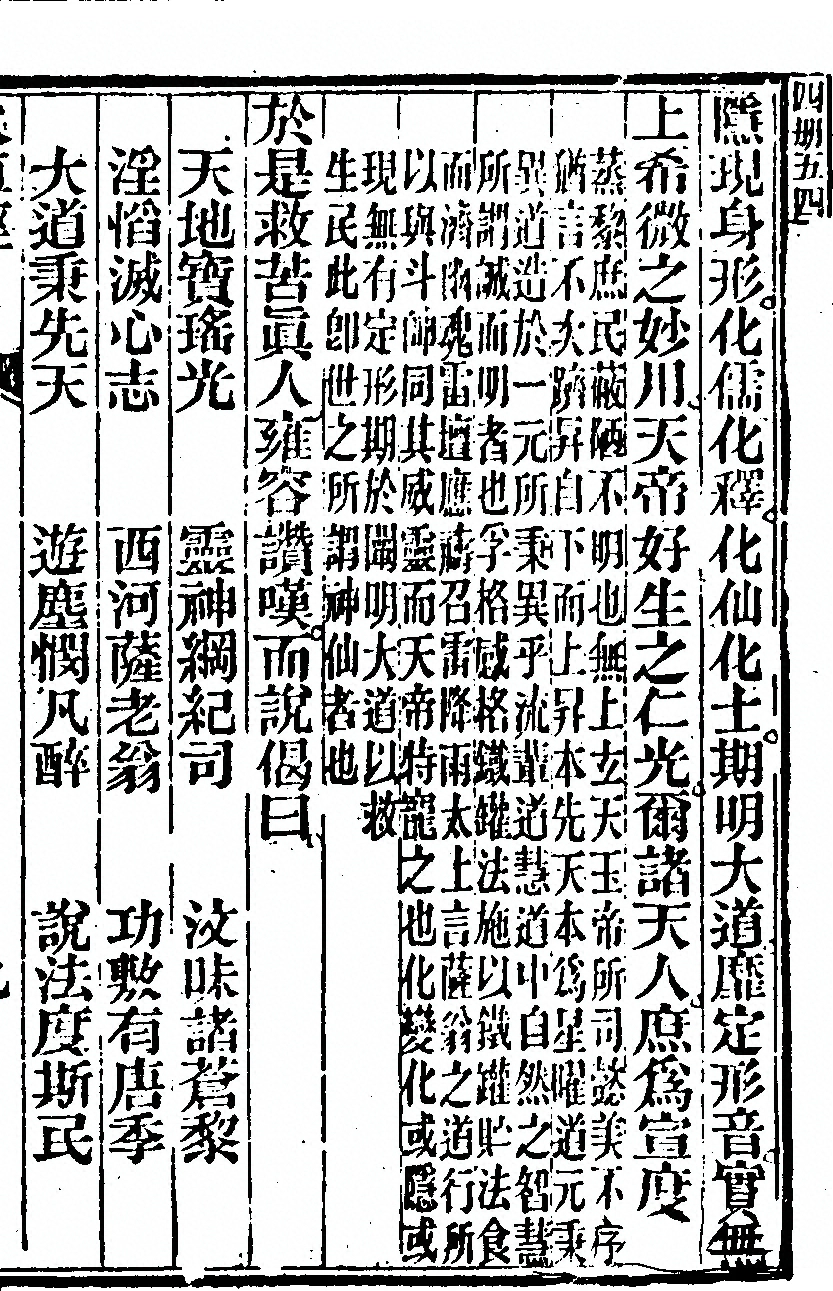 四卌五四
隱現身形化儒化釋化仙化士期明大道靡定形音實無
上希微之妙用天帝好生之仁光爾諸天人庶爲宣度
蒸黎庶民蔽陋不明也無上玄天玉帝所司懿美不序
猶言不次躋昇自下而上昇本先天本爲星曜道元秉
異道造於一元所秉異乎流輩道慧道中自然之智慧
所謂誠而明者也孚格感格鐵罐法施以鐵罐貯法食
而濟幽魂雷壇應禱召雷降雨太上言薩翁之道行所
以與斗師同其威靈而天帝特寵之也化變化或隱或
現無有定形期於闡明大道以救
生民此卽世之所謂神仙者也
於是救苦眞人雍容讚嘆而說偈曰
天地寶瑤光　靈神綱紀司　汶昧諸蒼黎
淫慆滅心志　西河薩老翁　功敷有唐季
大道秉先天　遊塵憫凡醉　說法度斯民